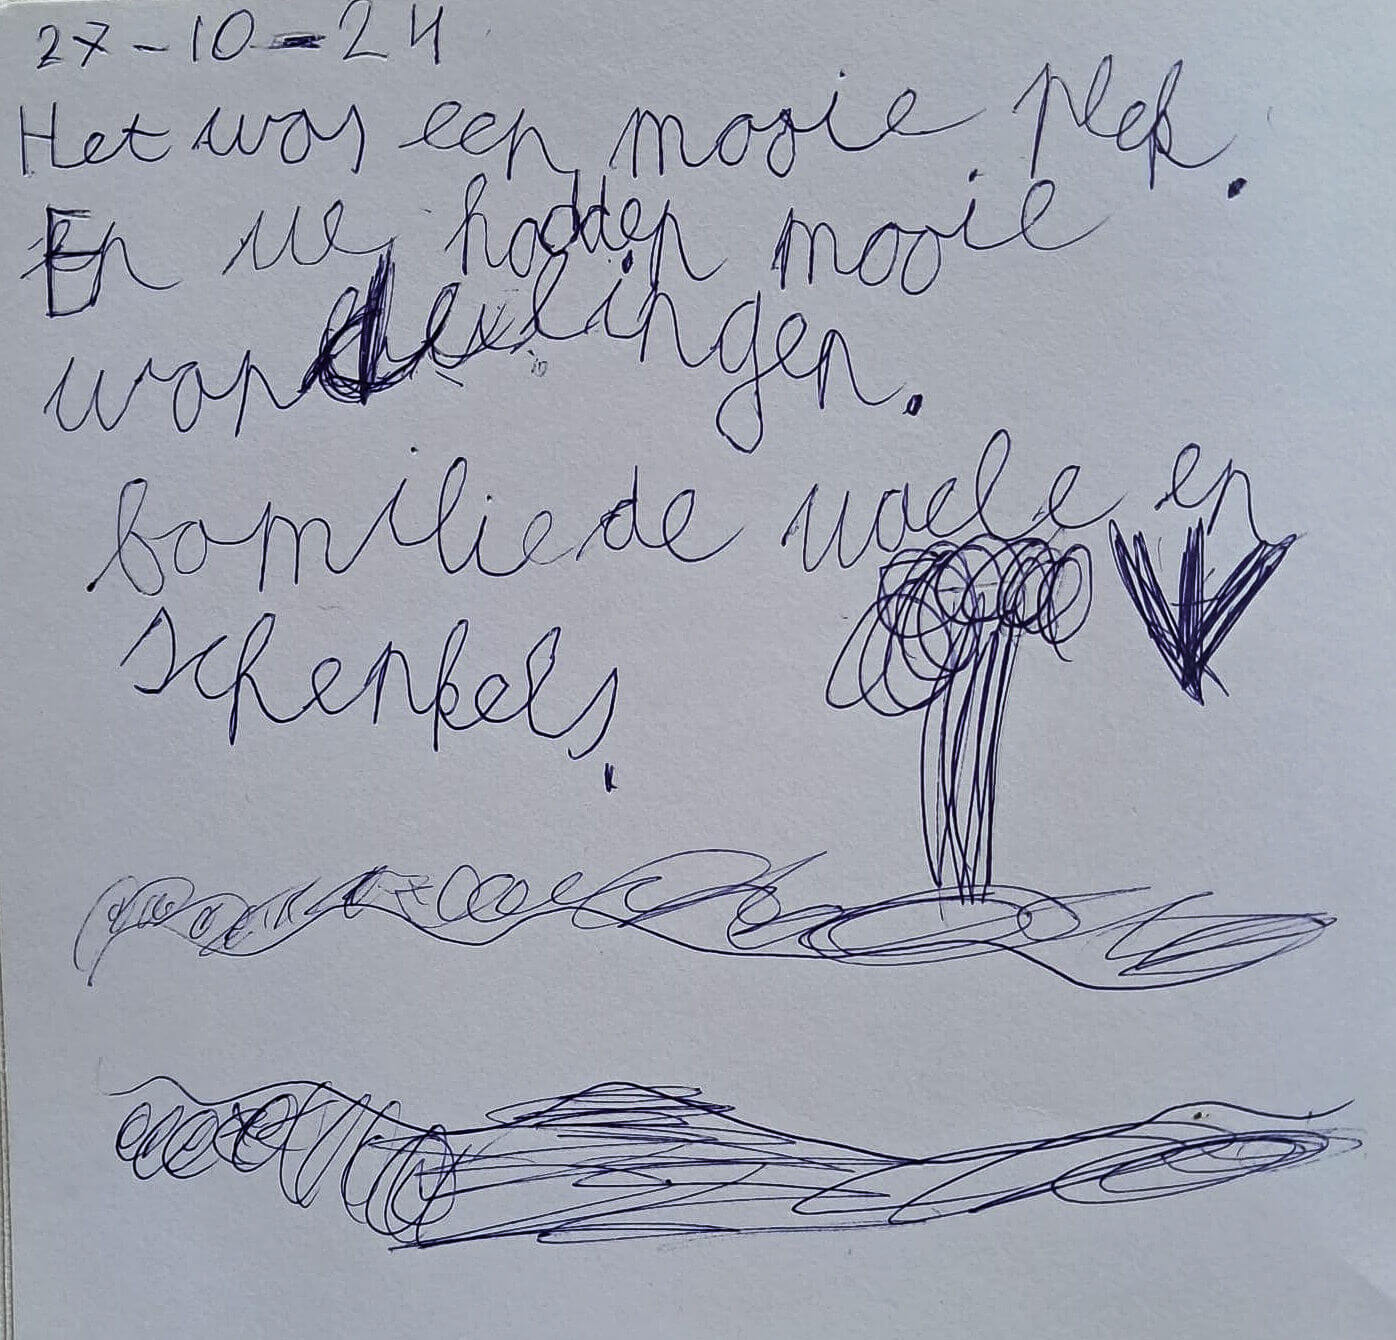 27-10-24
Het was een mooie plek.
En we hadden mooie
wandelingen.
familie de waele en
schenkels.